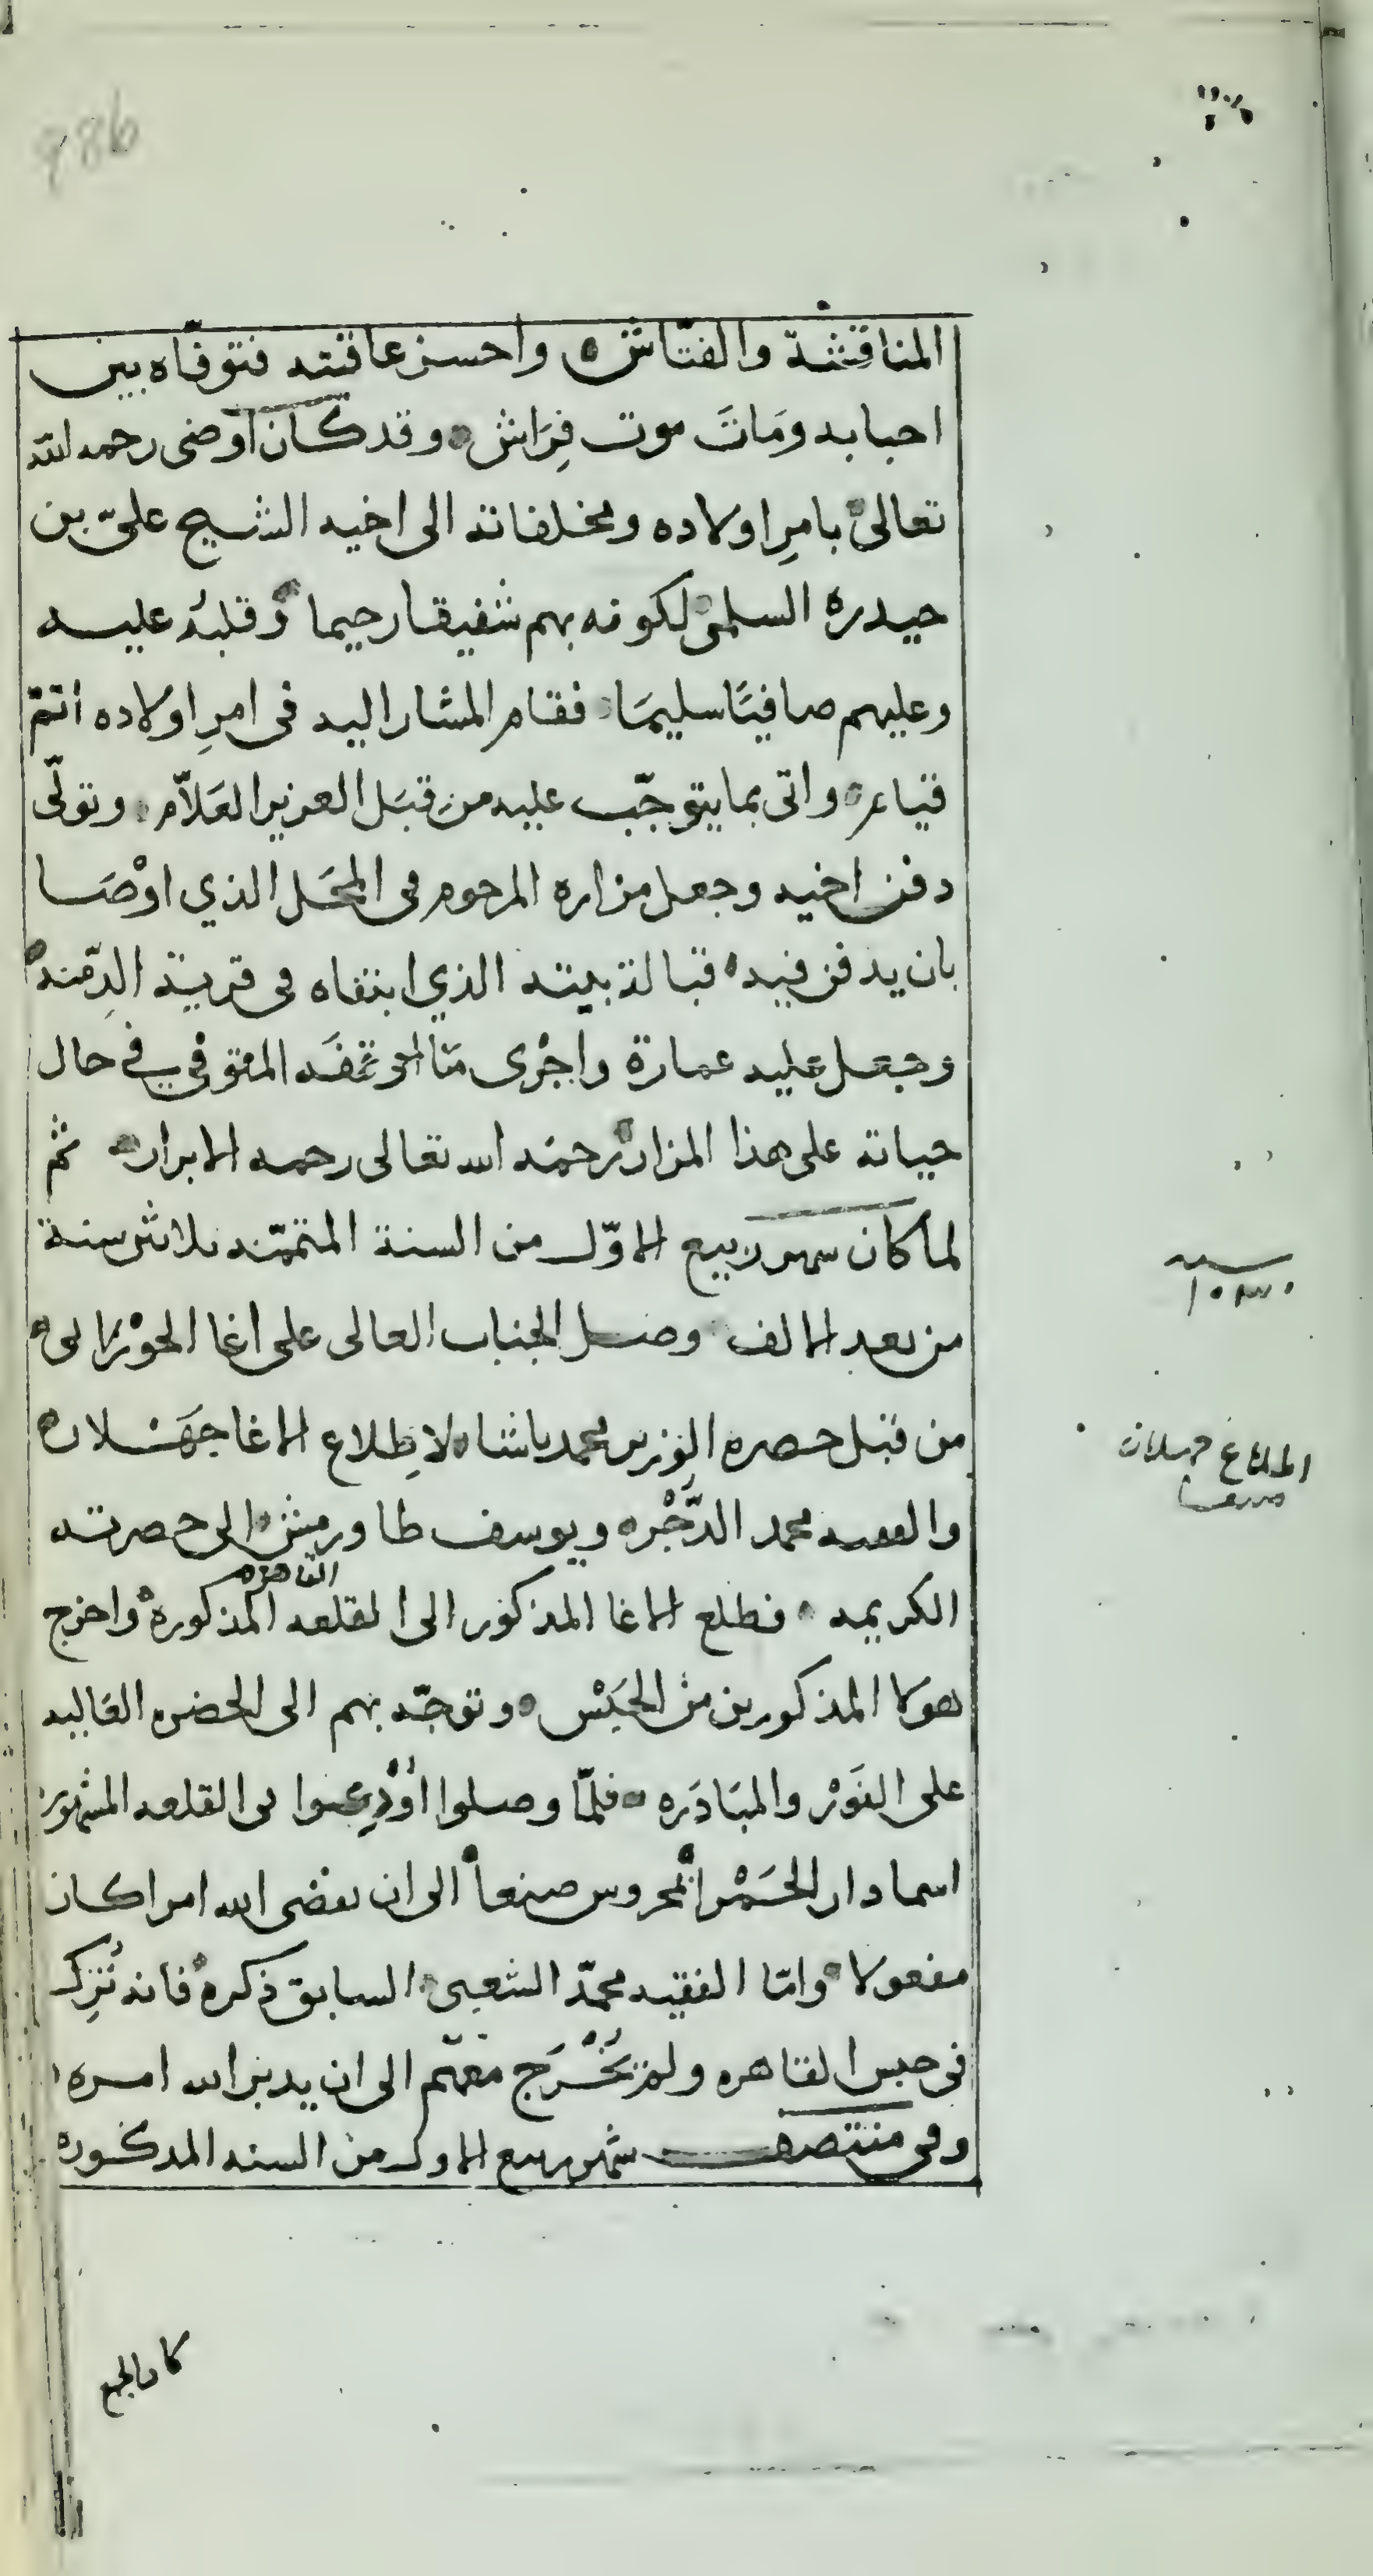 986
المناقشة والفتاش واحسن عاقبته فتوفاه بين
احبابه ومَاتَ موت فِرَاش وقد كان اوصى رحمه الله
تعالى بامرِ اولاده ومخلفاته الى اخيه الشيخ علىّ بن
حيدره السلمى لكونه بهم شفيقا رحيما وقلبُه عليه
وعليهم صافيًا سليمَا فقام المشار اليه فى امرِ اولاده اتمّ
قيام واتى بما يتوجّب عليه من قبَل العزيز العَلاّم وتولّى
دفن اخيه وجعل مزاره المرحوم فى المحَل الذي اوْصَا
بان يدفن فيه قبالة بيته الذي ابتناه فى قرية الدِمنه
وجعل عليه عمارة واجْرى المتوفى في حال
حياته على هذا المزار رحمَه الله تعالى رحمه الابرار ثم
لما كان شهر ربيع الاوّل من السنة المتممّه ثلاثين سنة
من بعد الالف وصل الجناب العالى على اغا الحوْزالى
من قبل حصره الوزير محمد باشاه لاطِلاع الاغا جَهَنلان
والفقيه محمد الدَّجْره ويوسف طاورمش الى حصرته
الكريمه فطلع الاغا المذكور الى القلعه القاهره المذكورة واخرج
هولا المذكورين من الحَبْس وتوجّه بهم الى الحضره العَاليه
على الفَوْر والمبَادَره فلمّا وصلوا اُوْدِعوا فى القلعه المشهور
اسما دار الحَمْرا بمحروس صنعا الى ان يقضى الله امرا كان
مفعولا وامّا الفقيه محمّد الشعبى السابق ذكره فانه تُرِك
فى حبس القاهره ولم يُخْرَج معهم الى ان يدبر الله امره
وفى منتصف شهر ربيع الاول من السنه المذكوره
سنه
١٠٣٠
اطلاع جهلان
كان الجمع